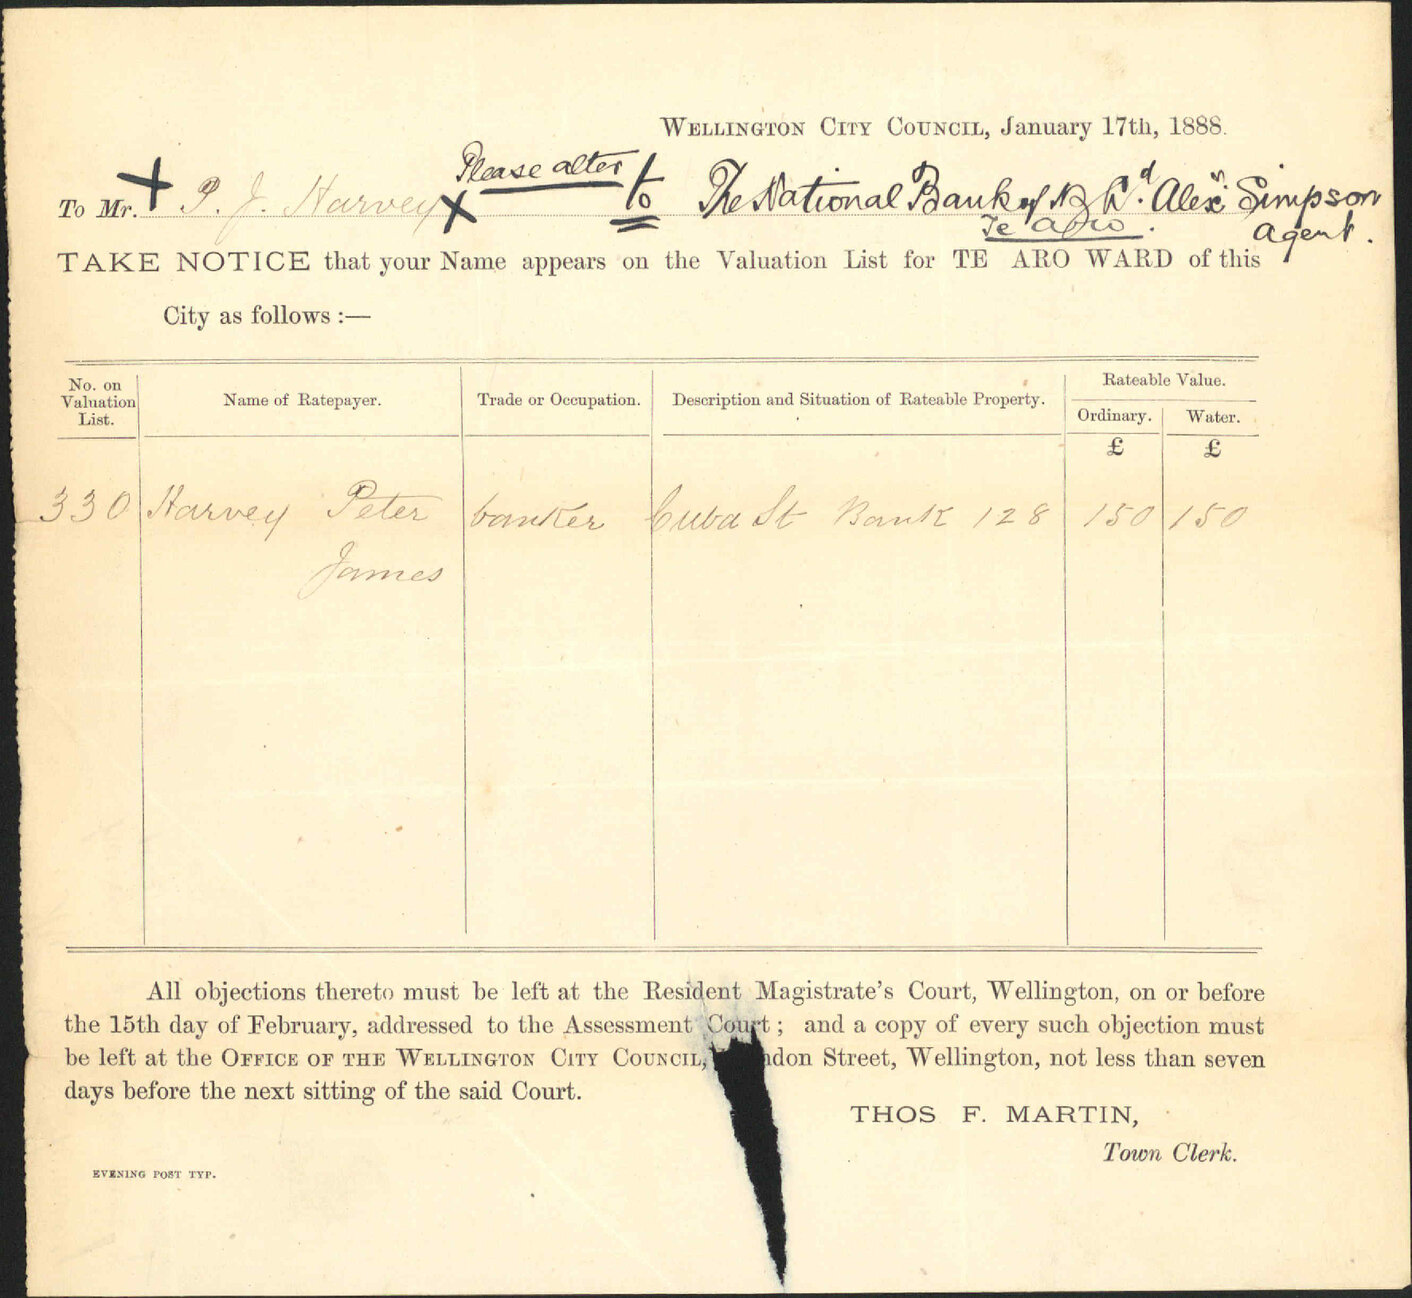 WELLINGTON CITY COUNCIL, January 17th, 1888.
Please alter
To Mr. P. J. Harvey to The National Bank of N Z Ld. Alexr Simpson
Te Aro. Agent.
TAKE NOTICE that your Name appears on the Valuation List for TE ARO WARD of this
City as follows :—
No. on Valuation List. Name of Ratepayer. Trade or Occupation. Description and Situation of Rateable Property. Rateable Value.
Ordinary. Water.
£ £
330 Harvey Peter banker Cuba St Bank 128 150 150
James
All objections thereto must be left at the Resident Magistrate's Court, Wellington, on or before
the 15th day of February, addressed to the Assessment Court; and a copy of every such objection must
be left at the OFFICE OF THE WELLINGTON CITY COUNCIL, Street, Wellington, not less than seven
days before the next sitting of the said Court.
THOS F. MARTIN,
Town Clerk.
EVENING POST TYP.